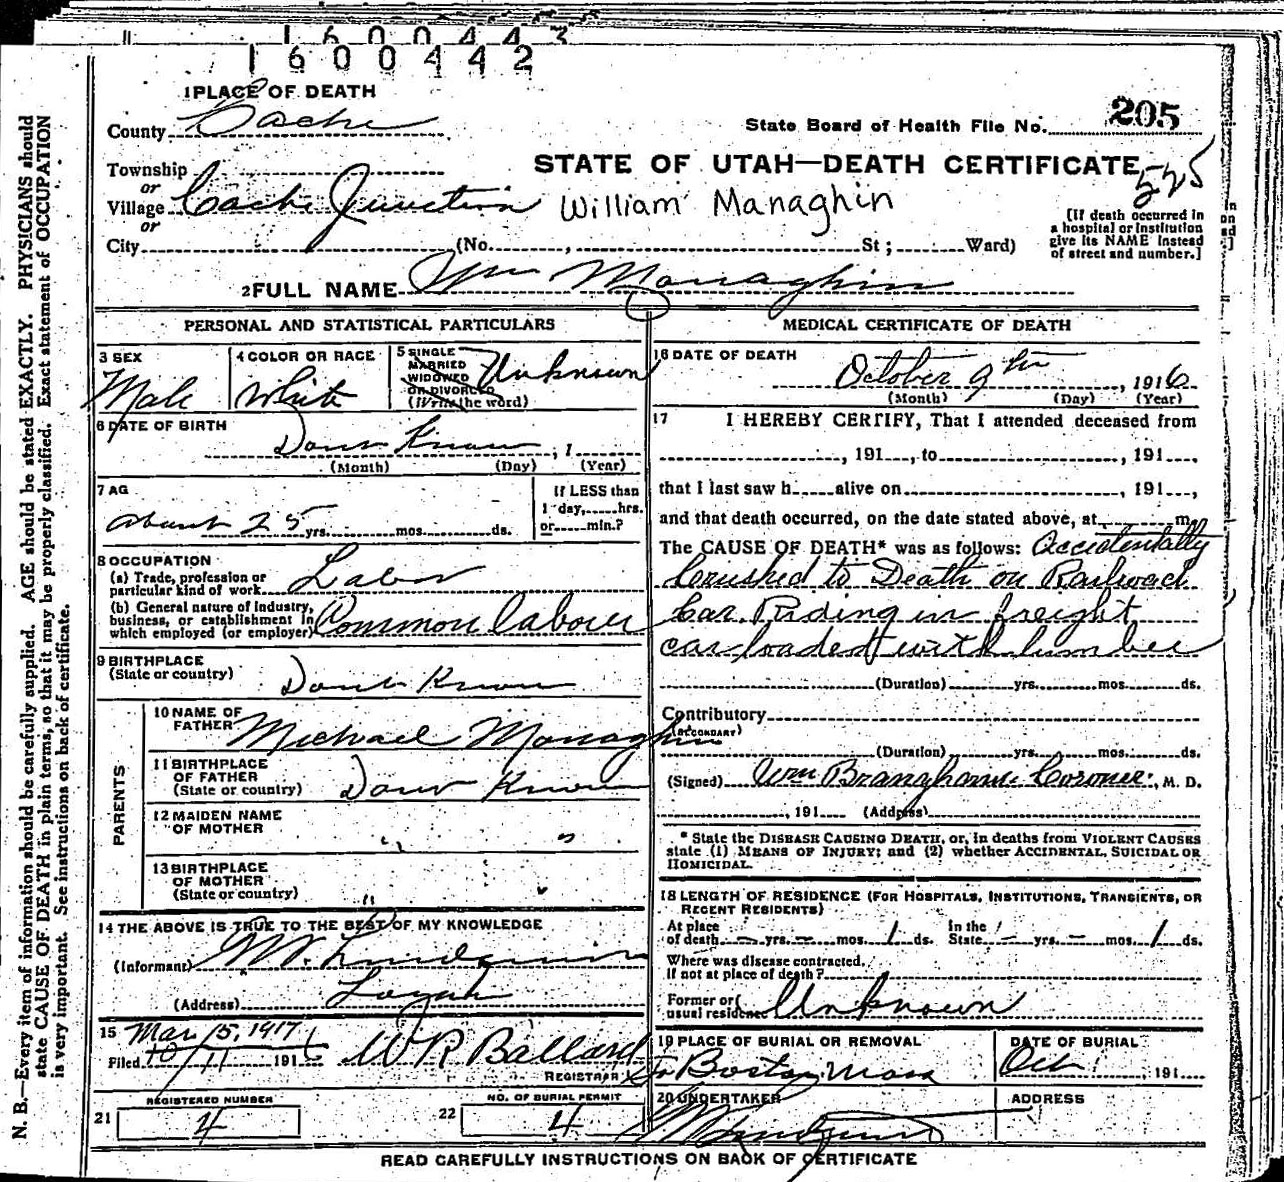 1600443
1600442
1 PLACE OF DEATH
County Cache
State Board of Health File No. 205
Township
or
STATE OF UTAH—DEATH CERTIFICATE
525
Village Cache Junction
William Managhin
or
City (No. , St ; Ward)
[If death occurred in
a hospital or institution
give its NAME instead
of street and number.]
2 FULL NAME Wm Managhin
PERSONAL AND STATISTICAL PARTICULARS
3 SEX
Male
4 COLOR OR RACE
White
5 SINGLE
MARRIED
WIDOWED
OR DIVORCED
(Write the word)
Unknown
6 DATE OF BIRTH
Dont Know , 1
(Month) (Day) (Year)
7 AG
about 25 yrs. mos. ds.
If LESS than
1 day, hrs.
or min.?
8 OCCUPATION
(a) Trade, profession or
particular kind of work Labor
(b) General nature of industry,
business, or establishment in
which employed (or employer) Common laborer
9 BIRTHPLACE
(State or country)
Dont Know
PARENTS
10 NAME OF
FATHER Michael Managhin
11 BIRTHPLACE
OF FATHER
(State or country) Dont Know
12 MAIDEN NAME
OF MOTHER " "
13 BIRTHPLACE
OF MOTHER
(State or country) "
14 THE ABOVE IS TRUE TO THE BEST OF MY KNOWLEDGE
(Informant)
(Address) Logan
15
Mar 15, 1917
Filed 10/11 1916 W R Ballard
REGISTRAR
21 REGISTERED NUMBER
4
22 NO. OF BURIAL PERMIT
4
MEDICAL CERTIFICATE OF DEATH
16 DATE OF DEATH
October 9th , 1916
(Month) (Day) (Year)
17 I HEREBY CERTIFY, That I attended deceased from
, 191 , to , 191 ,
that I last saw h alive on , 191 ,
and that death occurred, on the date stated above, at m.
The CAUSE OF DEATH* was as follows: Accidentally
Crushed to Death on Railroad
Car. Riding in freight
car loaded with lumber
(Duration) yrs. mos. ds.
Contributory
(SECONDARY)
(Duration) yrs. mos. ds.
(Signed) Wm Coroner , M. D.
, 191 (Address)
* State the DISEASE CAUSING DEATH, or, in deaths from VIOLENT CAUSES
state (1) MEANS OF INJURY; and (2) whether ACCIDENTAL, SUICIDAL OR
HOMICIDAL.
18 LENGTH OF RESIDENCE (FOR HOSPITALS, INSTITUTIONS, TRANSIENTS, OR
RECENT RESIDENTS)
At place
of death — yrs. — mos. 1 ds.
In the
State — yrs. — mos. 1 ds.
Where was disease contracted,
if not at place of death?
Former or
usual residence Unknown
19 PLACE OF BURIAL OR REMOVAL
To Boston Mass
DATE OF BURIAL
Oct 191
20 UNDERTAKER
ADDRESS
READ CAREFULLY INSTRUCTIONS ON BACK OF CERTIFICATE
N. B.—Every item of information should be carefully supplied. AGE should be stated EXACTLY. PHYSICIANS should
state CAUSE OF DEATH in plain terms, so that it may be properly classified. Exact statement of OCCUPATION
is very important. See instructions on back of certificate.